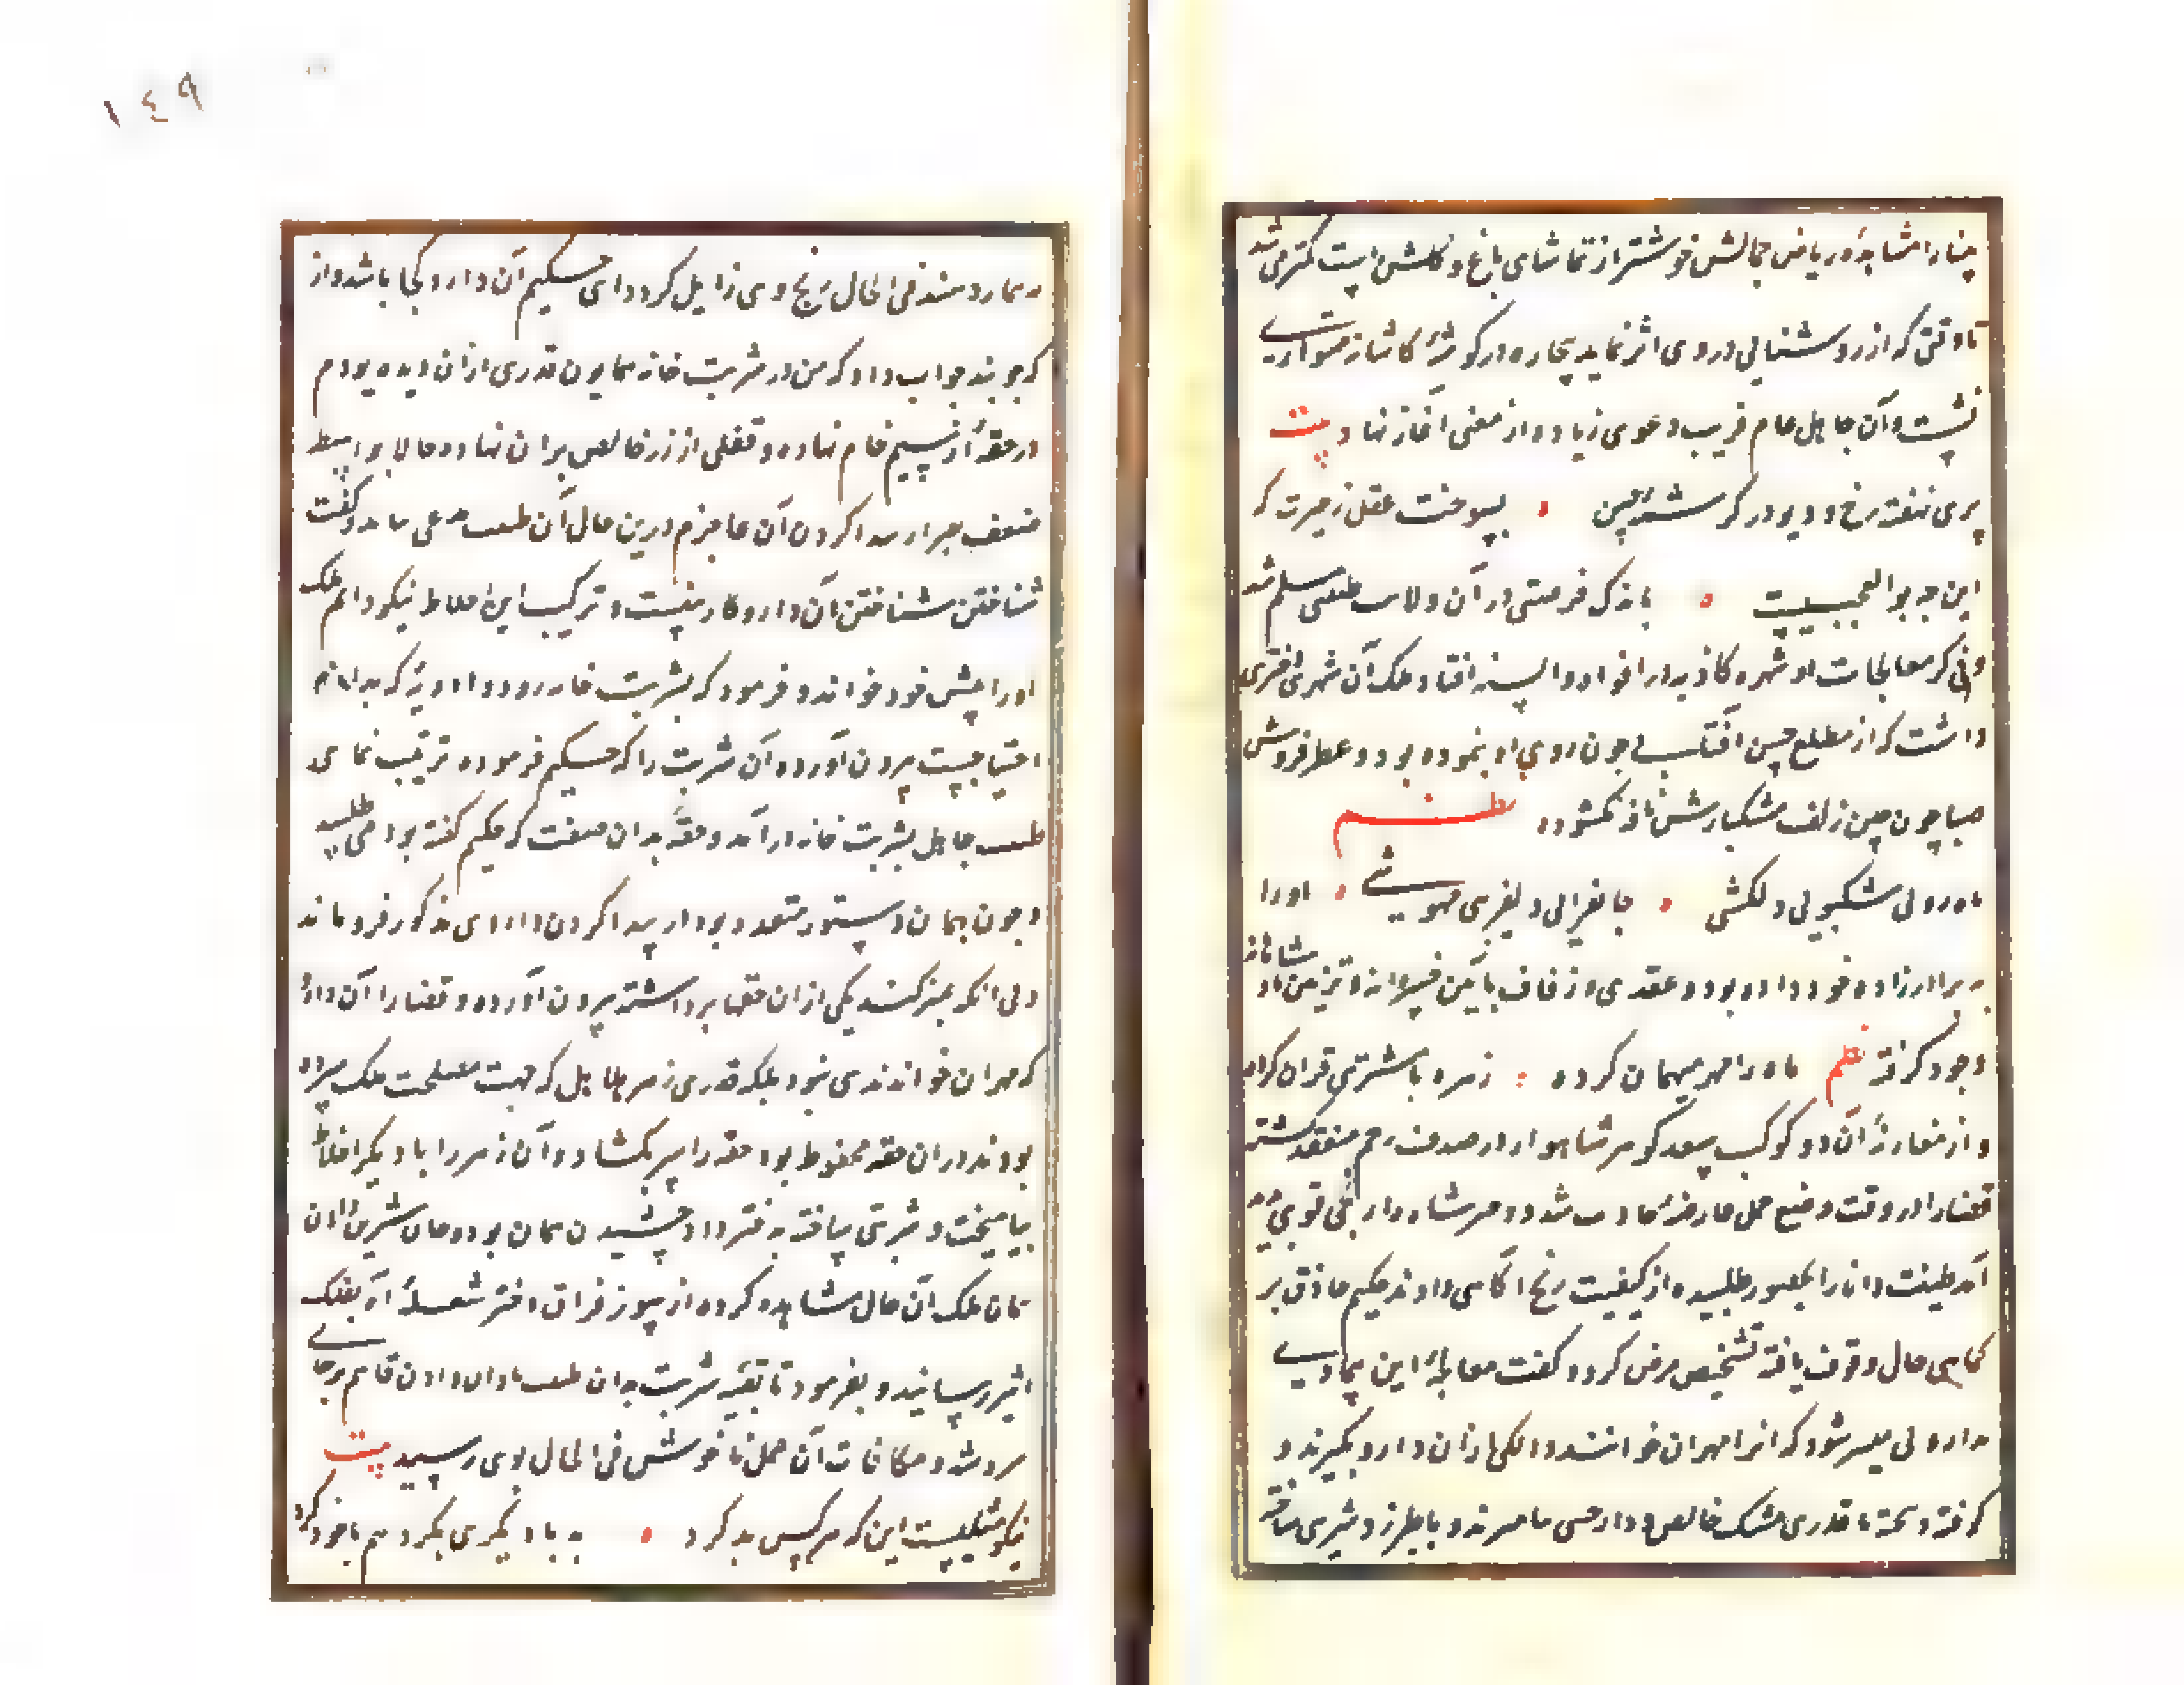 بینا را مشاهدهٔ ریاض جمالش خوشتر از تماشای باغ و گلشن است کمتر می شد
تا وقتی که از روشنایی در وی اثر نماند بیچاره در گوشهٔ کاشانه متواری
نشست و آن جاهل عام فریب دعوی زیاده از معنی آغاز نهاد بیت
پری نهفته رخ و دیو در کرشمه حسن • بسوخت عقل ز حیرت که
این چه بوالعجبیست • باندک فرصتی در آن ولایت طبیبی مسلم شد
و ذکر معالجات او شهره کاذبه در افواه و السنه افتاد ملک آن شهر دختری
داشت که از مطلع حسن آفتابی چون روی او ننموده بود و عطر فروش
صبا چون چین زلف مشکبارش نافه نگشوده نظم
ماه رویی مشکبویی دلکشی • جانفزایی دلفریبی مهوشی • او را
به برادرزاده خود داده بود و عقدی و زفاف بآیین خسروانه و تزیین شاهانه
وجود گرفته نظم ماه را مهر میهمان کرده : زهره با مشتری قران کرده
و از مقارنهٔ آن دو کوکب سعد گوهر شاهوار در صدف رحم منعقد گشته
قضا را در وقت وضع حمل عارضهٔ حادث شد و دختر شاه را رنجی قوی
آمد طبیب دانا را بحضور طلبیده از کیفیت رنج آگاهی دادند حکیم حاذق بر
کماهی حال وقوف یافته تشخیص مرض کرد و گفت معالجهٔ این بیماری
بدارویی میسر شود که آنرا مهران خوانند دانگی ازان دارو بگیرند و
کوفته و بیخته با قدری مشک خالص و دارچینی
بیمار دهند فی الحال رنج وی زایل گردد ای حکیم آن دارو کجا باشد و از
که جویند جواب داد که من در شربت خانه همایون قدری ازان دیده بودم
در حقهٔ از سیم خام نهاده و قفلی از زر خالص بران نهاده حالا بواسطه
ضعف بصر از پیدا کردن آن عاجزم درین حال آن طبیب مدعی بیامد و گفت
شناختن آن دارو کار منست و ترکیب این اخلاط نیکو دانم ملک
او را پیش خود خواند و فرمود که بشربت خانه رود و ادویهٔ که بدان
احتیاجست بیرون آورده آن شربت را که حکیم فرموده ترتیب نمای
طبیب جاهل بشربت خانه درآمد و حقهٔ بدان صفت که حکیم گفته بود می طلبید
و چون بهمان دستور متعدد بود از پیدا کردن داروی مذکور فرو ماند
و بی آنکه تمیز کند یکی ازان حقها برداشته بیرون آورد و قضا را آن دارو
که مهران خوانند نبود بلکه قدری زهر هلاهل که جهت مصلحت ملک سپرده
بودند در ان حقه محفوظ بود حقه را سر بگشاد و آن زهر را با دیگر اخلاط
بیامیخت و شربتی ساخته بدختر داد چشیدن همان بود و جان شیرین دادن
همان ملک آن حال مشاهده کرده از سوز فراق دختر شعلهٔ آه بفلک
اثیر رسانید و بفرمود تا بقیه شربت بدان طبیب نادان دادند هم بر جای
سرد شد و مکافات آن عمل ناخوش فی الحال بوی رسید بیت
نیکو مثلیست این که هر کس بد کرد • نه با دیگری بکرد هم با خود کرد
١٤٩